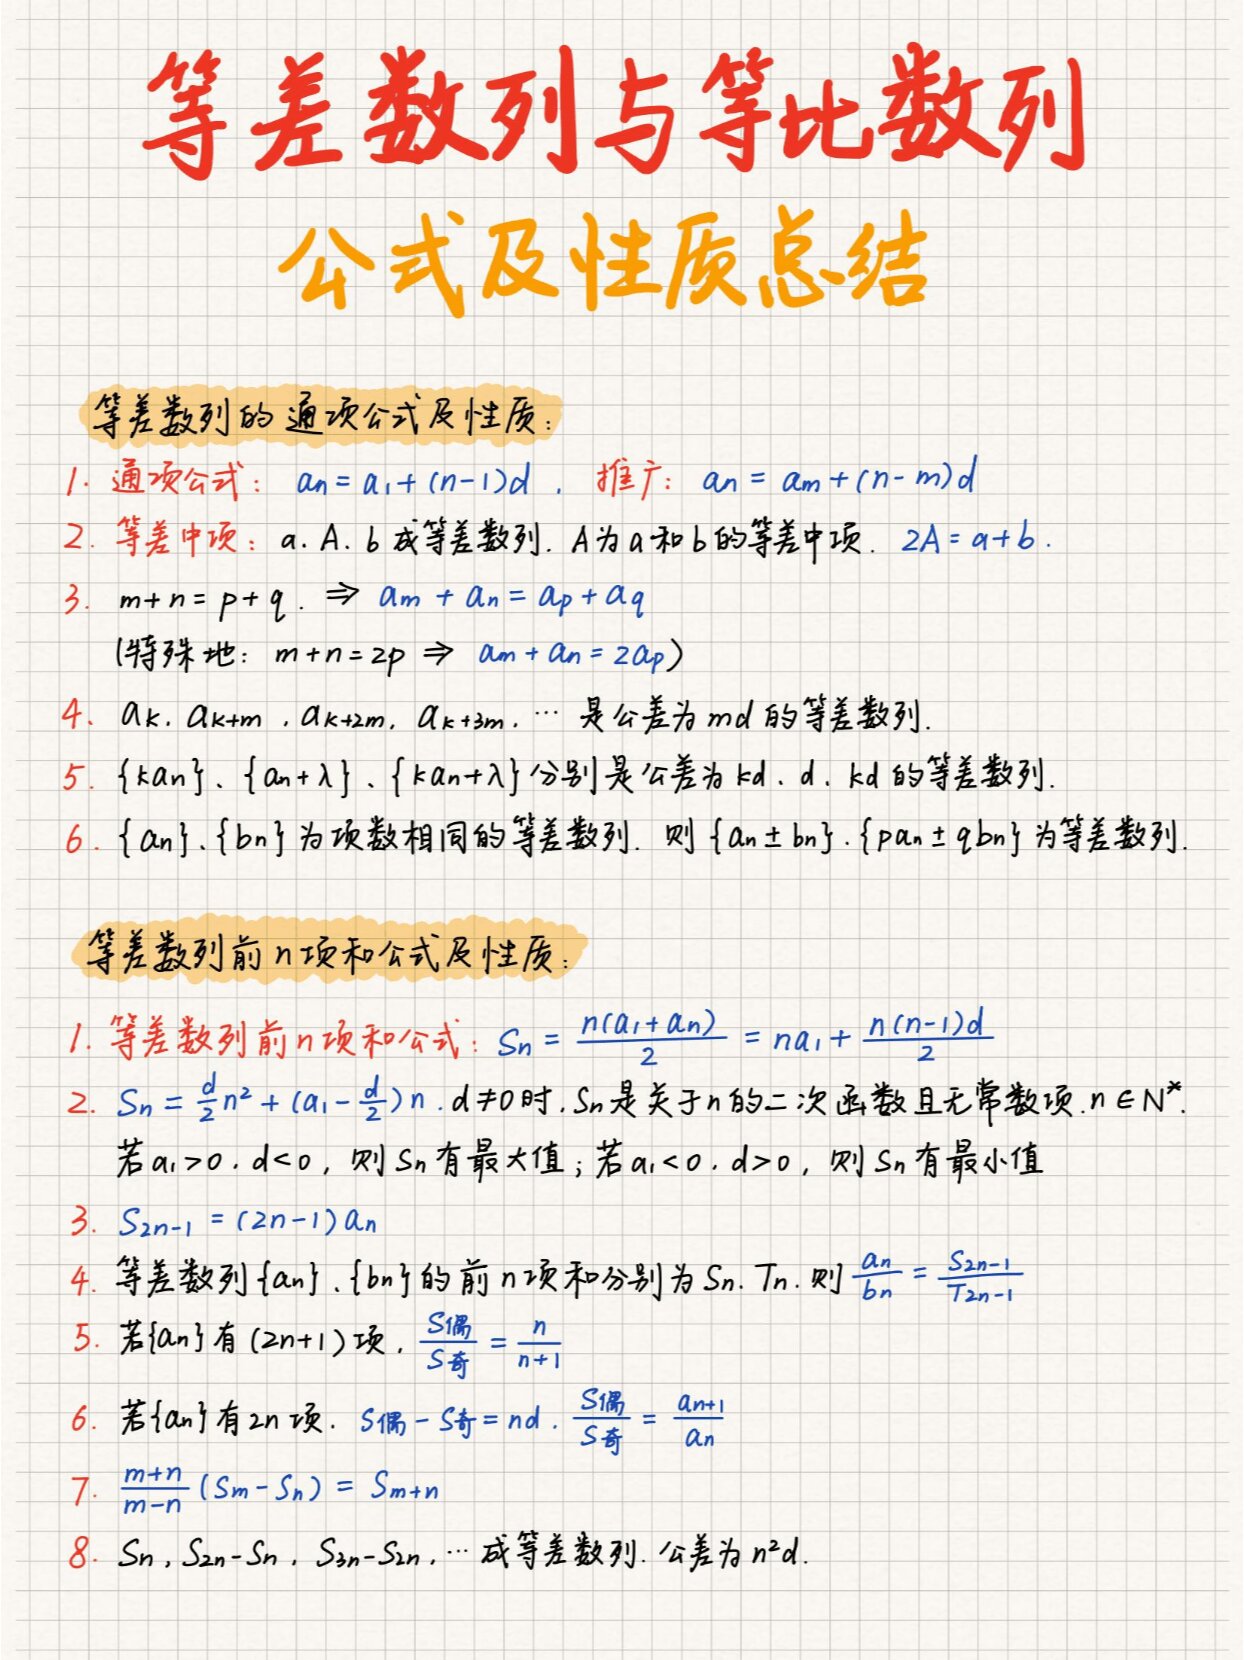 等差数列与等比数列
公式及性质总结
等差数列的通项公式及性质:
1. 通项公式: an = a₁ + (n-1)d . 推广: an = am + (n-m)d
2. 等差中项: a. A. b 成等差数列. A为a和b的等差中项. 2A = a+b .
3. m+n = p+q . ⇒ am + an = ap + aq
(特殊地: m+n = 2p ⇒ am + an = 2ap)
4. ak. ak+m . ak+2m. ak+3m. … 是公差为md的等差数列.
5. {kan}、{an+λ}、{kan+λ}分别是公差为kd、d、kd的等差数列.
6. {an}、{bn}为项数相同的等差数列. 则{an±bn}.{pan±qbn}为等差数列.
等差数列前n项和公式及性质:
1. 等差数列前n项和公式: Sn = n(a₁+an)/2 = na₁ + n(n-1)d/2
2. Sn = d/2 n² + (a₁ - d/2)n . d≠0时. Sn是关于n的二次函数且无常数项. n∈N*.
若a₁>0. d<0, 则Sn有最大值; 若a₁<0. d>0, 则Sn有最小值
3. S2n-1 = (2n-1)an
4. 等差数列{an}、{bn}的前n项和分别为Sn. Tn. 则 an/bn = S2n-1/T2n-1
5. 若{an}有(2n+1)项. S偶/S奇 = n/n+1
6. 若{an}有2n项. S偶-S奇 = nd . S偶/S奇 = an+1/an
7. m+n/m-n (Sm-Sn) = Sm+n
8. Sn, S2n-Sn, S3n-S2n, … 成等差数列. 公差为n²d.